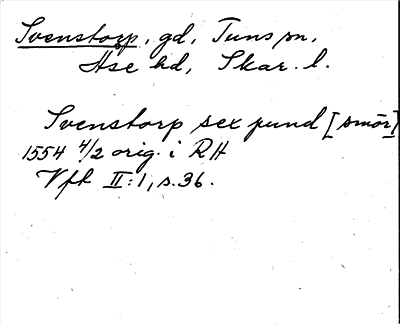 Svenstorp, gd, Tuns sn,
Åse hd, Skar. l.
Svenstorp sex pund [smör]
1554 4/2 orig. i RH
Vfk II:1, s. 36.